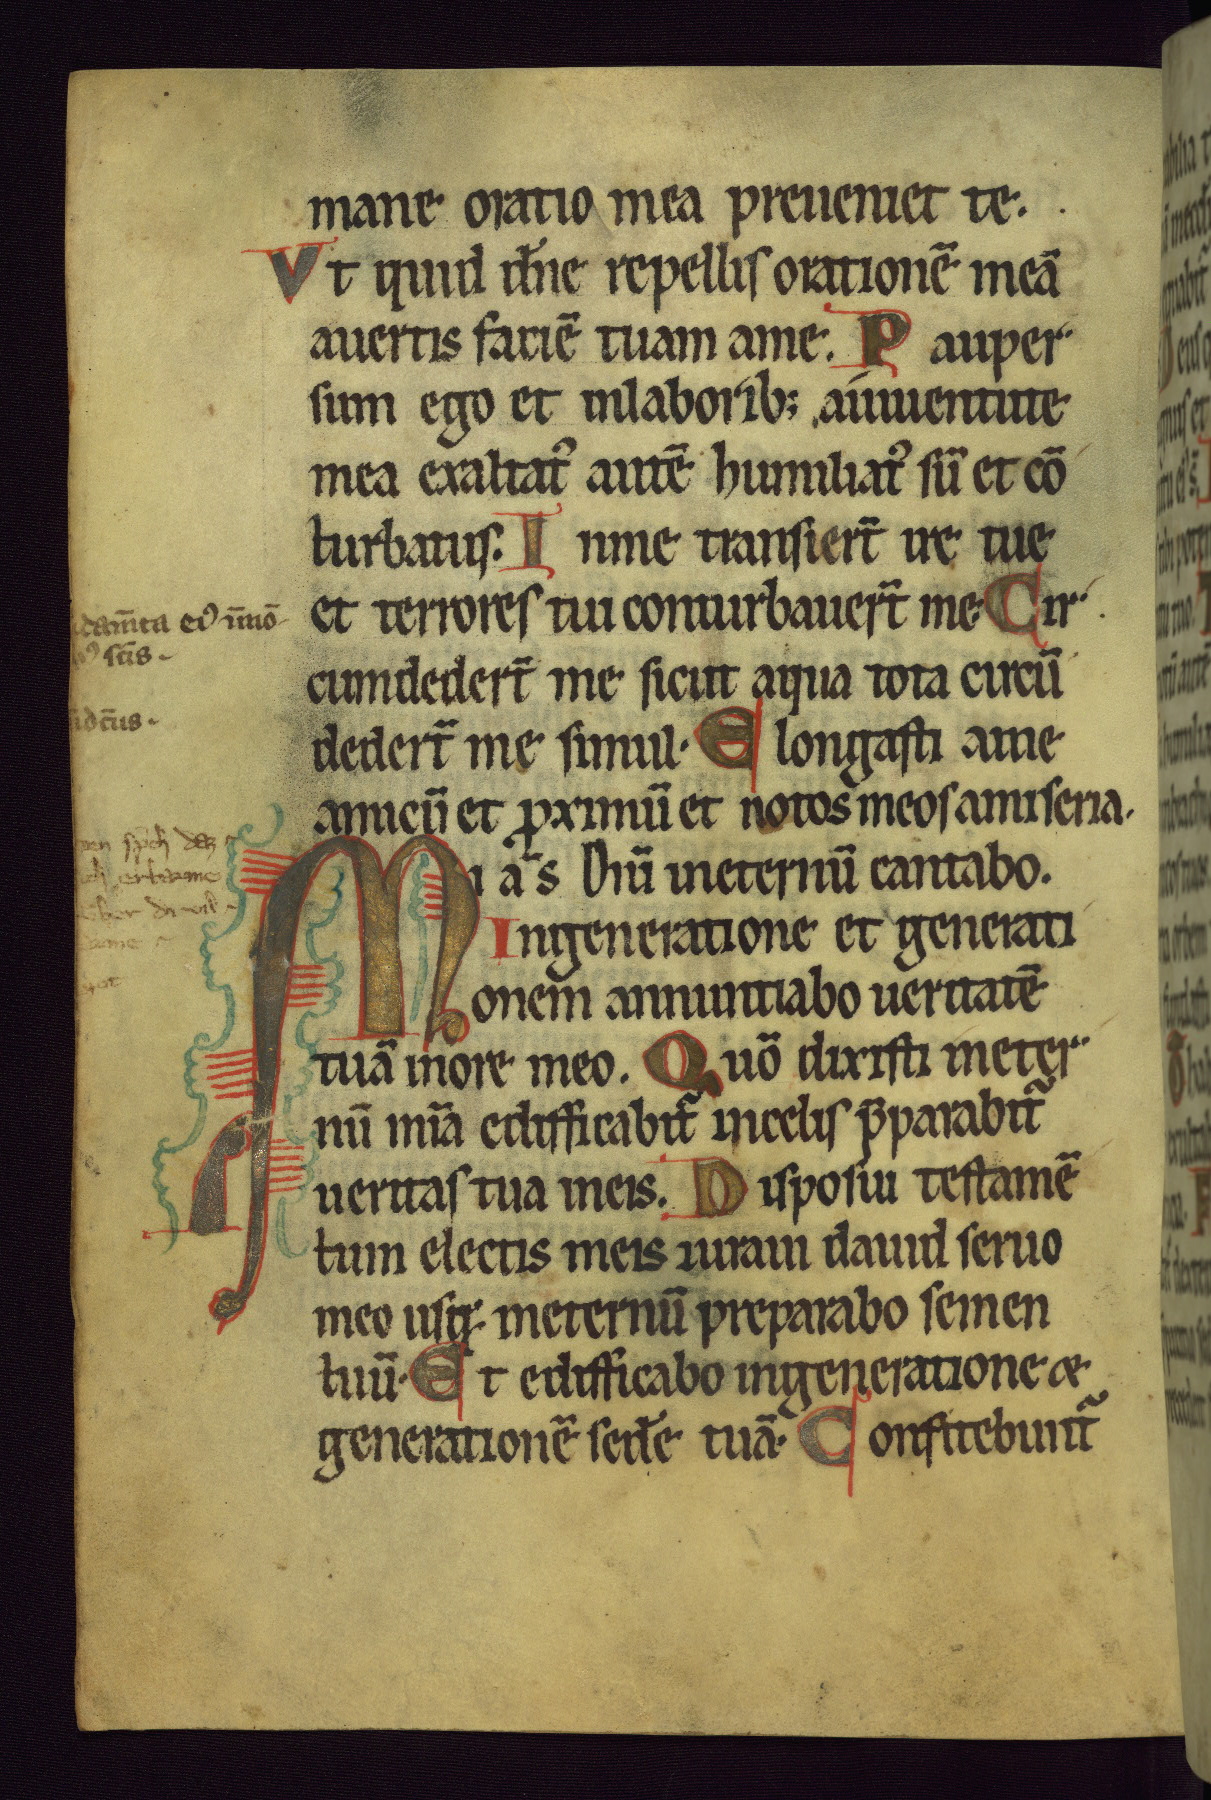 mane oratio mea preueniet te.
Vt quid dñe repellis orationē meā
auertis faciē tuam ame. Pauper
sum ego et inlaborib; aiuuentute
mea exaltatꝰ autē humiliatꝰ sū et cō
turbatus. Inme transiert̄ ire tue
et terrores tui conturbauert̄ me. Cir
cumdedert̄ me sicut aqua tota circū
dedert̄ me simul. Elongasti ame
amicū et ꝓximū et notos meos amiseria.
Mīas Dn̄i ineternū cantabo.
Ingeneratione et generati
onem annuntiabo ueritatē
tuā inore meo. Quō dixisti ineter
nū mīa edifficabit᷑ incelis p̄parabit᷑
ueritas tua ineis. Disposui testamē
tum electis meis iuraui dauid seruo
meo usq; ineternū preparabo semen
tuū. Et edifficabo ingeneratione &
generationē sedē tuā. Confitebunt᷑